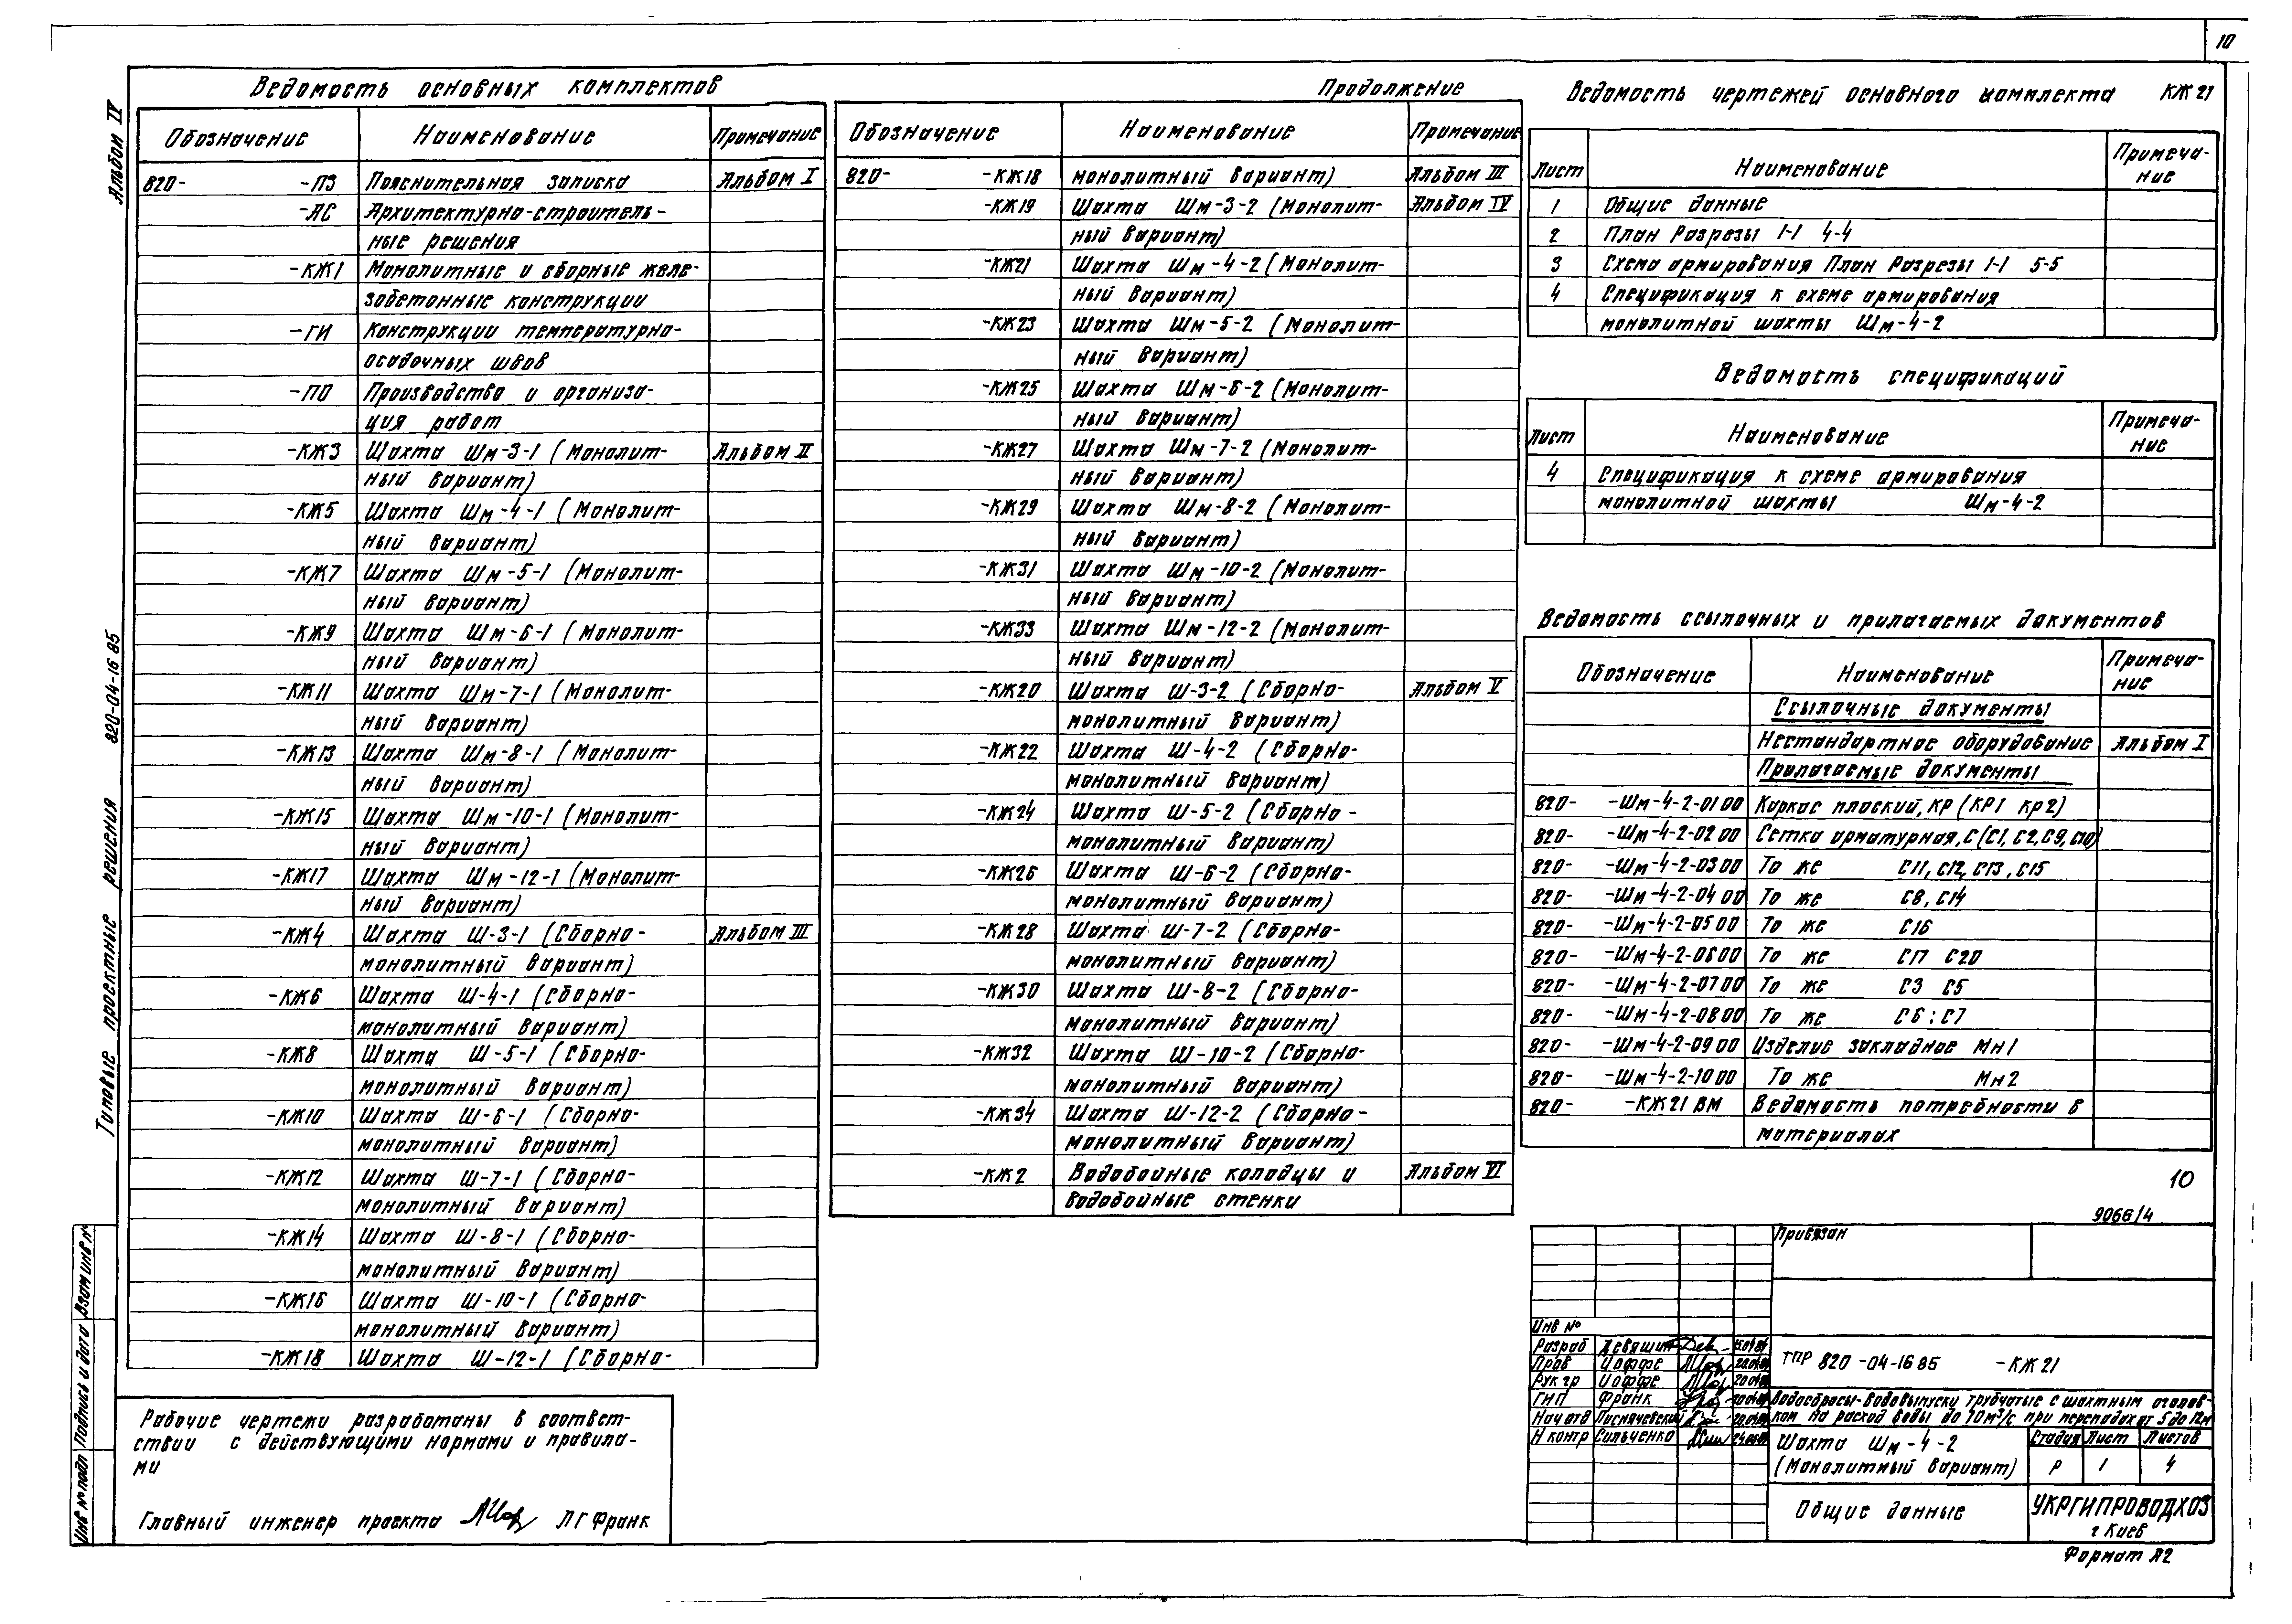 10
Альбом IV
Типовые проектные решения 820-04-16 85
Ведомость основных комплектов
Обозначение Наименование Примечание
820- -ПЗ Пояснительная записка Альбом I
-АС Архитектурно-строитель-
ные решения
-КЖ1 Монолитные и сборные желе-
зобетонные конструкции
-ГИ Конструкции температурно-
осадочных швов
-ПО Производство и организа-
ция работ
-КЖ3 Шахта Шм-3-1 (Монолит- Альбом II
ный вариант)
-КЖ5 Шахта Шм-4-1 (Монолит-
ный вариант)
-КЖ7 Шахта Шм-5-1 (Монолит-
ный вариант)
-КЖ9 Шахта Шм-6-1 (Монолит-
ный вариант)
-КЖ11 Шахта Шм-7-1 (Монолит-
ный вариант)
-КЖ13 Шахта Шм-8-1 (Монолит-
ный вариант)
-КЖ15 Шахта Шм-10-1 (Монолит-
ный вариант)
-КЖ17 Шахта Шм-12-1 (Монолит-
ный вариант)
-КЖ4 Шахта Ш-3-1 (Сборно- Альбом III
монолитный вариант)
-КЖ6 Шахта Ш-4-1 (Сборно-
монолитный вариант)
-КЖ8 Шахта Ш-5-1 (Сборно-
монолитный вариант)
-КЖ10 Шахта Ш-6-1 (Сборно-
монолитный вариант)
-КЖ12 Шахта Ш-7-1 (Сборно-
монолитный вариант)
-КЖ14 Шахта Ш-8-1 (Сборно-
монолитный вариант)
-КЖ16 Шахта Ш-10-1 (Сборно-
монолитный вариант)
-КЖ18 Шахта Ш-12-1 (Сборно-
Рабочие чертежи разработаны в соответ-
ствии с действующими нормами и правила-
ми
Главный инженер проекта Л Г Франк
Продолжение
Обозначение Наименование Примечание
820- -КЖ18 монолитный вариант) Альбом III
-КЖ19 Шахта Шм-3-2 (Монолит- Альбом IV
ный вариант)
-КЖ21 Шахта Шм-4-2 (Монолит-
ный вариант)
-КЖ23 Шахта Шм-5-2 (Монолит-
ный вариант)
-КЖ25 Шахта Шм-6-2 (Монолит-
ный вариант)
-КЖ27 Шахта Шм-7-2 (Монолит-
ный вариант)
-КЖ29 Шахта Шм-8-2 (Монолит-
ный вариант)
-КЖ31 Шахта Шм-10-2 (Монолит-
ный вариант)
-КЖ33 Шахта Шм-12-2 (Монолит-
ный вариант)
-КЖ20 Шахта Ш-3-2 (Сборно- Альбом V
монолитный вариант)
-КЖ22 Шахта Ш-4-2 (Сборно-
монолитный вариант)
-КЖ24 Шахта Ш-5-2 (Сборно-
монолитный вариант)
-КЖ26 Шахта Ш-6-2 (Сборно-
монолитный вариант)
-КЖ28 Шахта Ш-7-2 (Сборно-
монолитный вариант)
-КЖ30 Шахта Ш-8-2 (Сборно-
монолитный вариант)
-КЖ32 Шахта Ш-10-2 (Сборно-
монолитный вариант)
-КЖ34 Шахта Ш-12-2 (Сборно-
монолитный вариант)
-КЖ2 Водобойные колодцы и Альбом VI
водобойные стенки
Ведомость чертежей основного комплекта КЖ 21
Лист Наименование Примеча-
ние
1 Общие данные
2 План Разрезы 1-1 4-4
3 Схема армирования План Разрезы 1-1 5-5
4 Спецификация к схеме армирования
монолитной шахты Шм-4-2
Ведомость спецификаций
Лист Наименование Примеча-
ние
4 Спецификация к схеме армирования
монолитной шахты Шм-4-2
Ведомость ссылочных и прилагаемых документов
Обозначение Наименование Примеча-
ние
Ссылочные документы
Нестандартное оборудование Альбом I
Прилагаемые документы
820- -Шм-4-2-01 00 Каркас плоский, КР (КР1 КР2)
820- -Шм-4-2-02 00 Сетка арматурная, С (С1, С2, С9, С10)
820- -Шм-4-2-03 00 То же С11, С12, С13, С15
820- -Шм-4-2-04 00 То же С8, С14
820- -Шм-4-2-05 00 То же С16
820- -Шм-4-2-06 00 То же С17 С20
820- -Шм-4-2-07 00 То же С3 С5
820- -Шм-4-2-08 00 То же С6; С7
820- -Шм-4-2-09 00 Изделие закладное Мн1
820- -Шм-4-2-10 00 То же Мн2
820- -КЖ 21 ВМ Ведомость потребности в
материалах
10
9066/4
Привязан
Инв №
Разраб Девяшин
Пров Иоффе 20.04.84
Рук гр Иоффе 20.04.84
ГИП Франк 20.04.84
Нач отд
Н контр Сильченко
ТПР 820-04-16 85 -КЖ 21
Водосбросы-водовыпуски трубчатые с шахтным оголов-
ком на расход воды до 70 м³/с при перепадах от 5 до 12 м
Шахта Шм-4-2
(Монолитный вариант)
Стадия Лист Листов
Р 1 4
Общие данные
УКРГИПРОВОДХОЗ
г Киев
Формат А2
Инв № подл Подпись и дата Взам инв №